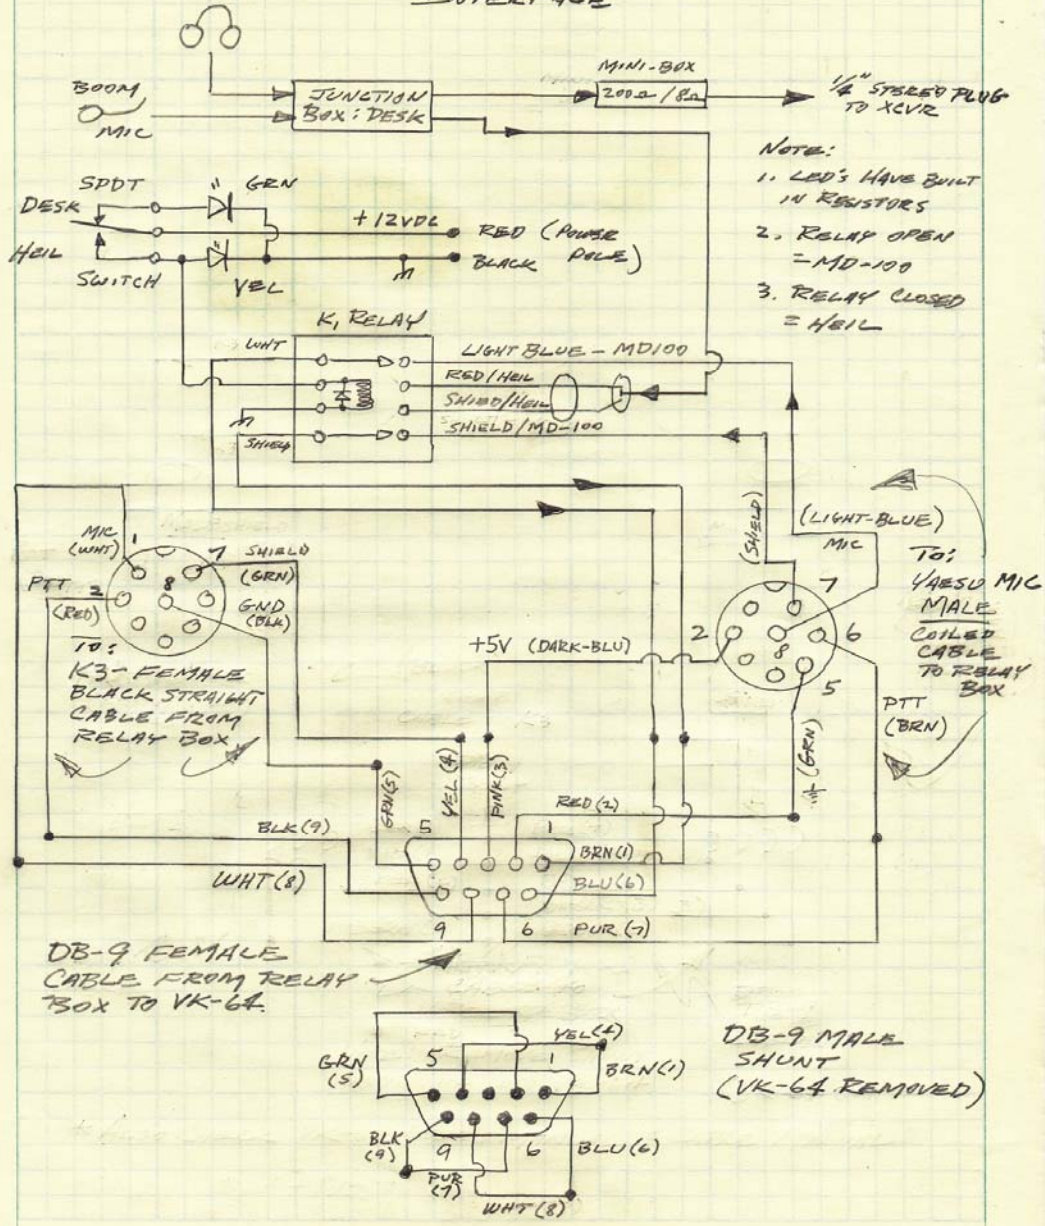 INTERFACE
BOOM
MIC
JUNCTION
BOX: DESK
MINI-BOX
200Ω/8Ω
1/4" STEREO PLUG
TO XCVR
NOTE:
1. LED'S HAVE BUILT
IN RESISTORS
2. RELAY OPEN
= MD-100
3. RELAY CLOSED
= HEIL
SPDT
DESK
HEIL
SWITCH
GRN
YEL
+12VDC
RED (POWER
BLACK POLE)
K1 RELAY
WHT
SHIELD
LIGHT BLUE - MD100
RED/HEIL
SHIELD/HEIL
SHIELD/MD-100
MIC
(WHT)
1
7
SHIELD
(GRN)
PTT
(RED)
2
8
GND
(BLK)
TO:
K3-FEMALE
BLACK STRAIGHT
CABLE FROM
RELAY BOX
(SHIELD)
(LIGHT-BLUE)
MIC
7
2
6
8
5
+5V (DARK-BLU)
PTT
(BRN)
(GRN)
TO:
YAESU MIC
MALE
COILED
CABLE
TO RELAY
BOX
GRN(5)
YEL(4)
PINK(3)
RED(2)
5
1
BRN(1)
BLU(6)
BLK(9)
WHT(8)
9
6
PUR(7)
DB-9 FEMALE
CABLE FROM RELAY
BOX TO VK-64.
GRN
(5)
5
1
YEL(4)
BRN(1)
BLK
(9)
9
6
BLU(6)
PUR
(7)
WHT(8)
DB-9 MALE
SHUNT
(VK-64 REMOVED)